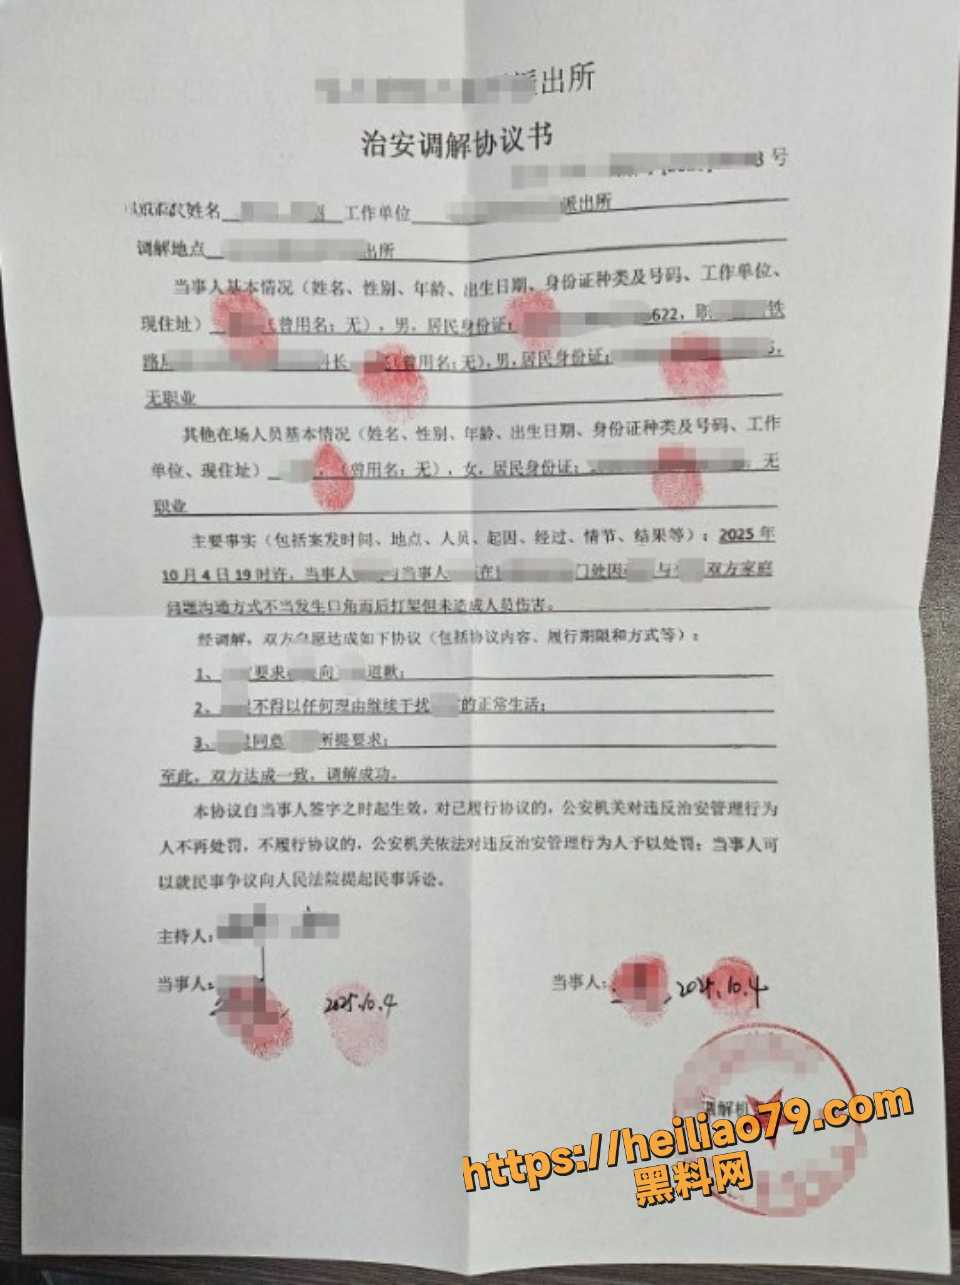 派出所
治安调解协议书
号
姓名 工作单位 派出所
调解地点 出所
当事人基本情况（姓名、性别、年龄、出生日期、身份证种类及号码、工作单位、
现住址） （曾用名：无），男，居民身份证： 622， 铁
路 科长 （曾用名：无），男，居民身份证： ，
无职业
其他在场人员基本情况（姓名、性别、年龄、出生日期、身份证种类及号码、工作
单位、现住址） ，（曾用名：无），女，居民身份证： ，无
职业
主要事实（包括案发时间、地点、人员、起因、经过、情节、结果等）：2025年
10月4日19时许，当事人 与当事人 在 门处因 与 双方家庭
问题沟通方式不当发生口角而后打架但未造成人员伤害。
经调解，双方自愿达成如下协议（包括协议内容、履行期限和方式等）：
1、 要求 向 道歉；
2、 不得以任何理由继续干扰 的正常生活；
3、 同意 所提要求；
至此，双方达成一致，调解成功。
本协议自当事人签字之时起生效，对已履行协议的，公安机关对违反治安管理行为
人不再处罚，不履行协议的，公安机关依法对违反治安管理行为人予以处罚；当事人可
以就民事争议向人民法院提起民事诉讼。
主持人：
当事人： 2025.10.4 当事人： 2025.10.4
调解机
https://heiliao79.com
黑料网